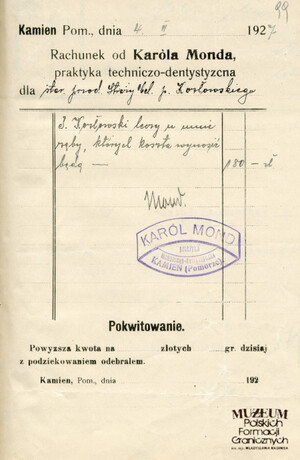 99
Kamien Pom., dnia 4. II 1927
Rachunek od Karóla Monda,
praktyka techniczo-dentystyzcna
dla star. przod. Straży Cel p. Kozłowskiego
P. Kozłowski leczy u mnie
zęby, których koszta wynosić
będą — 180 - zł
Mond.
KARÓL MOND
KAMIEN (Pomorze)
Pokwitowanie.
Powyzsza kwota na złotych gr. dzisiaj
z podziekowaniem odebralem.
Kamien, Pom., dnia 192
MUZEUM
Polskich
Formacji
Granicznych